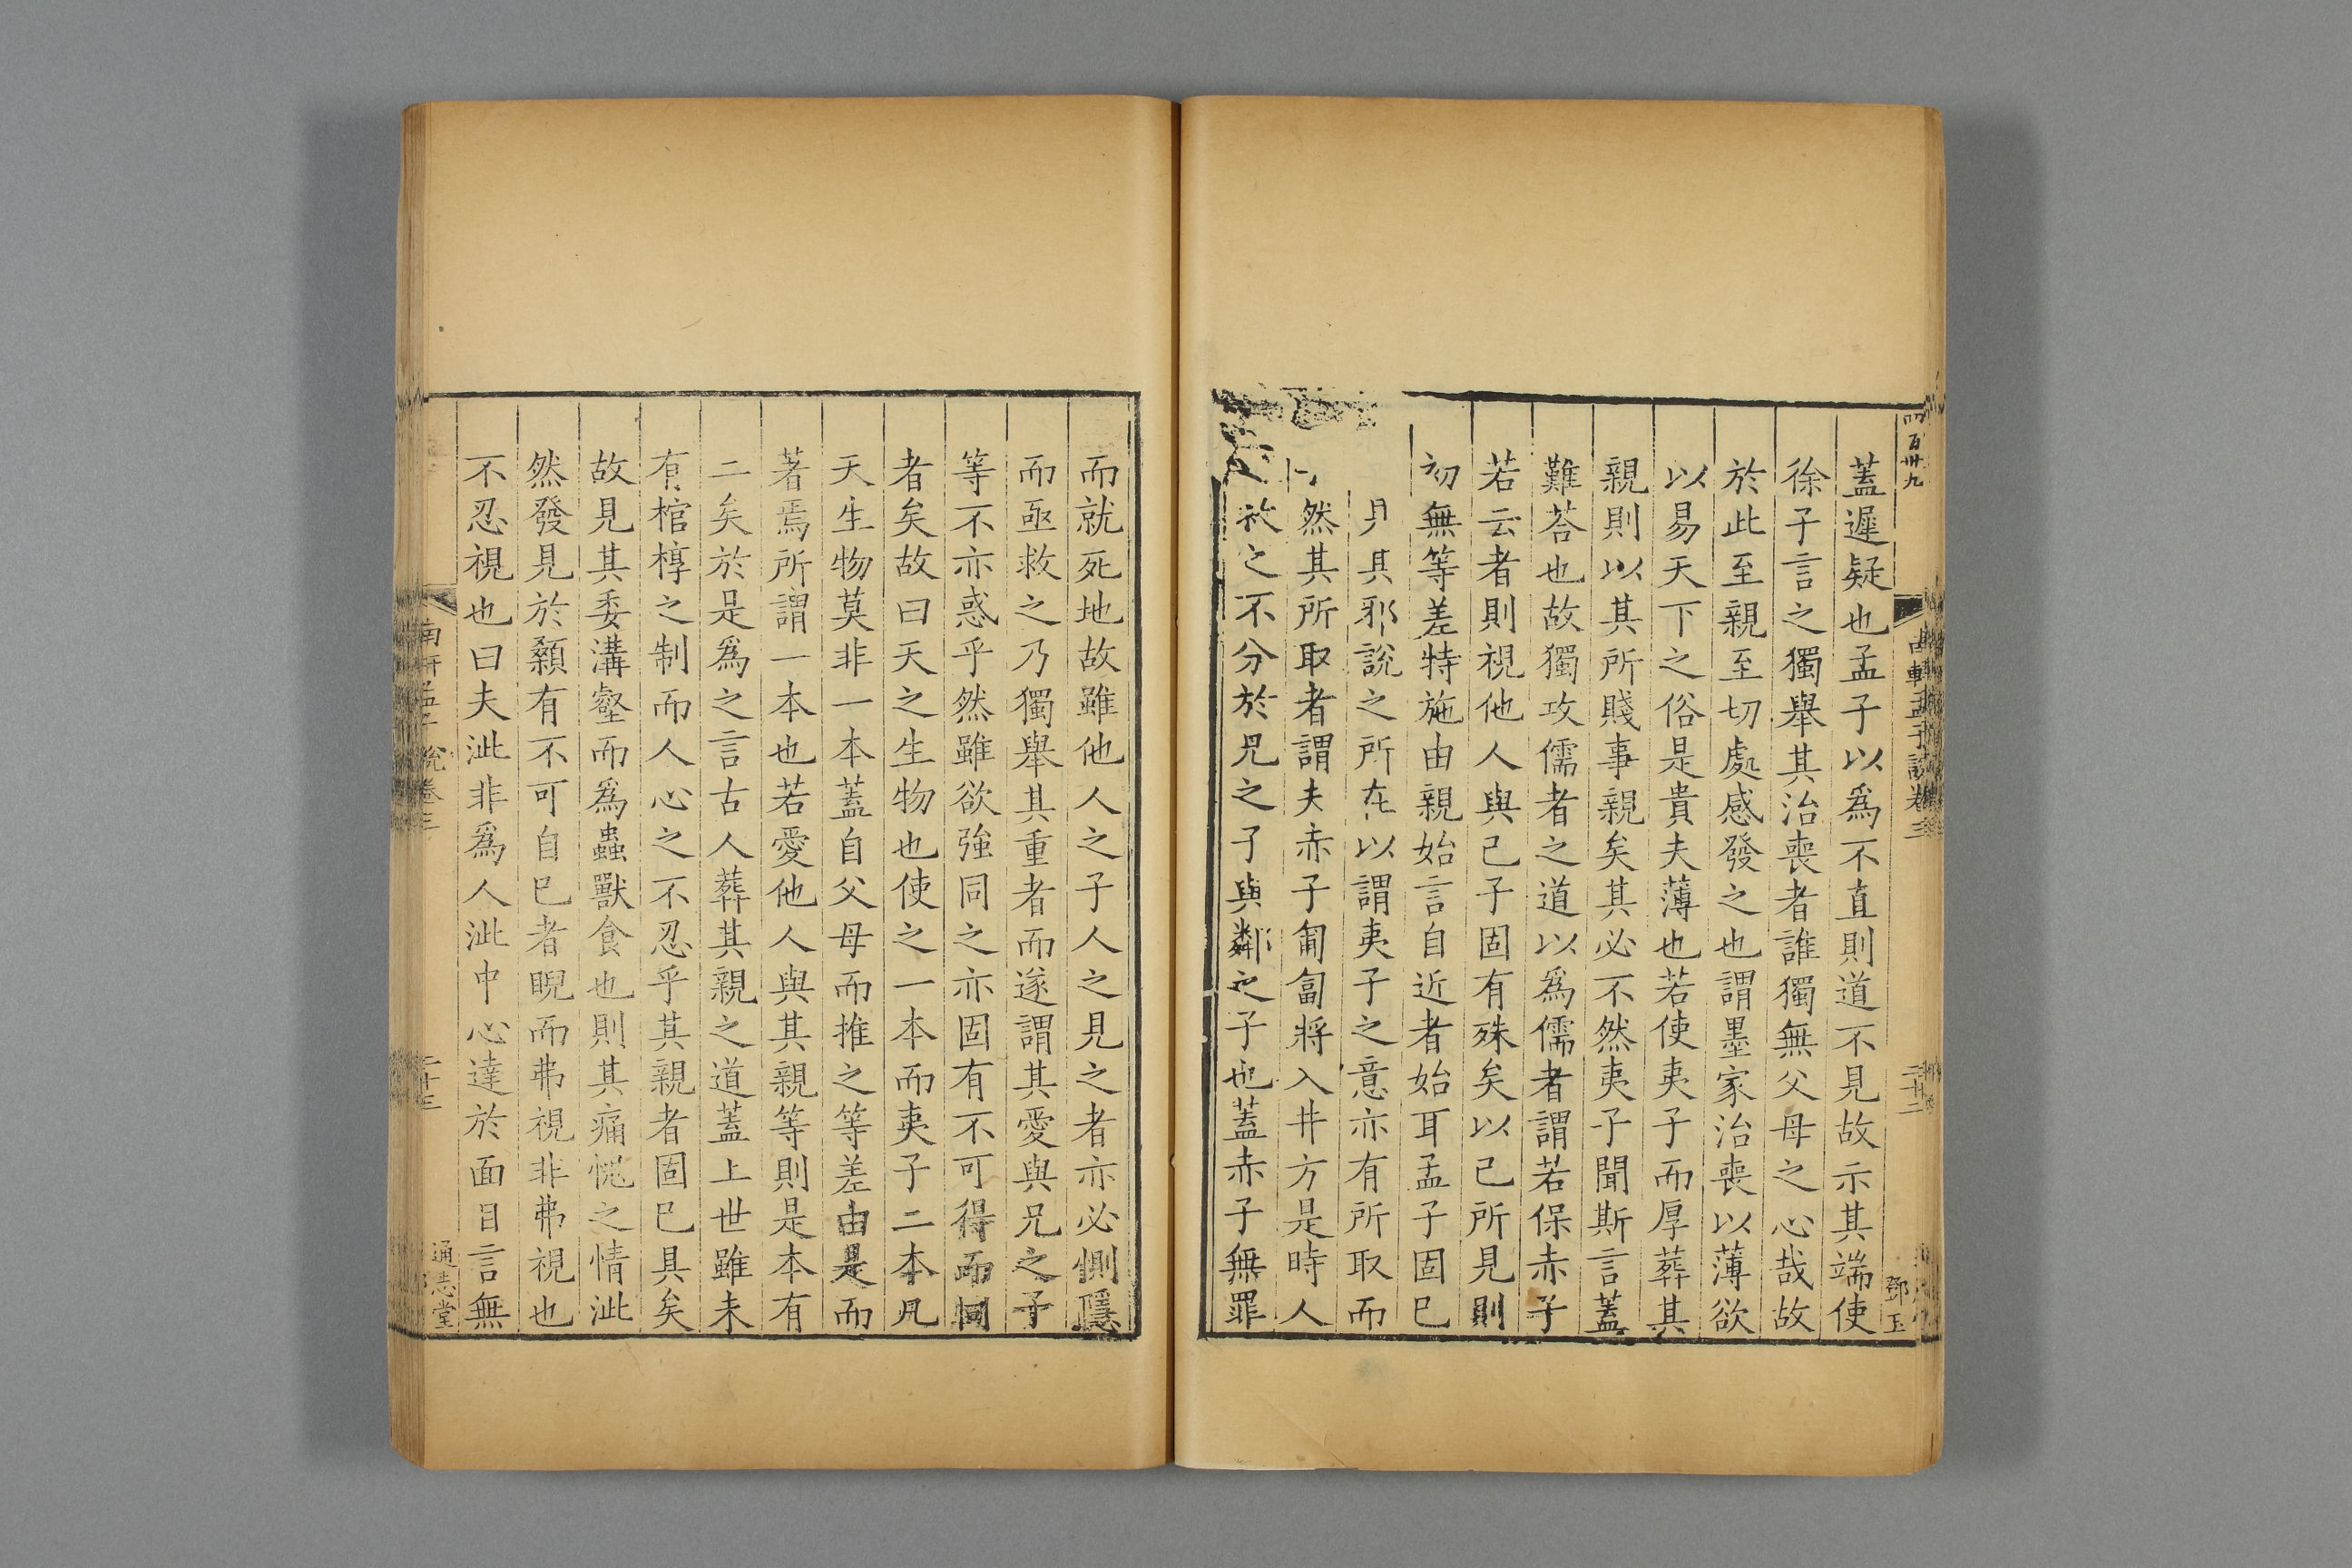 四百卅九
軒孟子說卷三
二十二
鄧玉
蓋遲疑也孟子以爲不直則道不見故示其端使
徐子言之獨舉其治喪者誰獨無父母之心哉故
於此至親至切處感發之也謂墨家治喪以薄欲
以易天下之俗是貴夫薄也若使夷子而厚葬其
親則以其所賤事親矣其必不然夷子聞斯言蓋
難荅也故獨攻儒者之道以爲儒者謂若保赤子
若云者則視他人與己子固有殊矣以己所見則
初無等差特施由親始言自近者始耳孟子固已
其邪說之所在以謂夷子之意亦有所取而
然其所取者謂夫赤子匍匐將入井方是時人
救之不分於兄之子與鄰之子也蓋赤子無罪
而就死地故雖他人之子人之見之者亦必惻隱
而亟救之乃獨舉其重者而遂謂其愛與兄之子
等不亦惑乎然雖欲強同之亦固有不可得而同
者矣故曰天之生物也使之一本而夷子二本凡
天生物莫非一本蓋自父母而推之等差由是而
著焉所謂一本也若愛他人與其親等則是本有
二矣於是爲之言古人葬其親之道蓋上世雖未
有棺椁之制而人心之不忍乎其親者固已具矣
故見其委溝壑而爲蟲獸食也則其痛愧之情泚
然發見於顙有不可自已者睨而弗視非弗視也
不忍視也曰夫泚非爲人泚中心達於面目言無
南軒孟子說卷三
二十三
通志堂